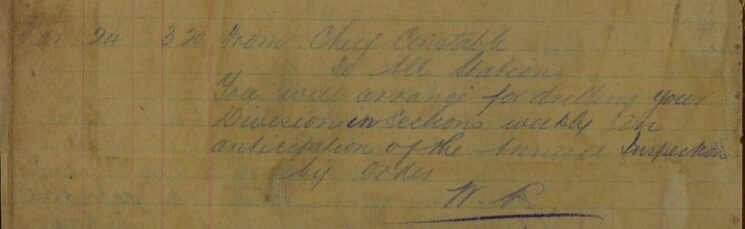 24 3 20 From Chief Constable
To All Stations
You will arrange for drilling your
Division in Sections weekly in
anticipation of the Annual Inspection
by order
W. R.